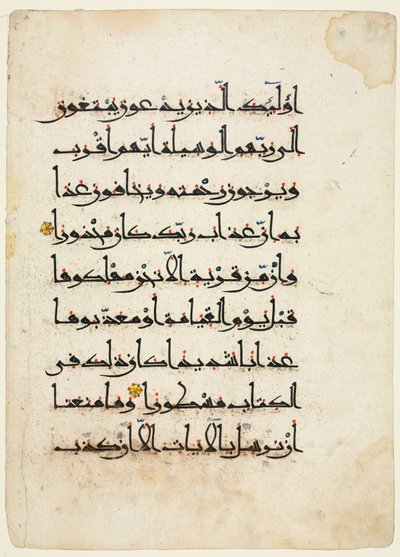 اولٰئك الذين يدعون يبتغون
الى ربهم الوسيلة ايهم اقرب
ويرجون رحمته ويخافون عذا
به ان عذاب ربك كان محذورا
وان من قرية الا نحن مهلكوها
قبل يوم القيامة او معذبوها
عذابا شديدا كان ذلك في
الكتاب مسطورا وما منعنا
ان نرسل بالايات الا ان كذب